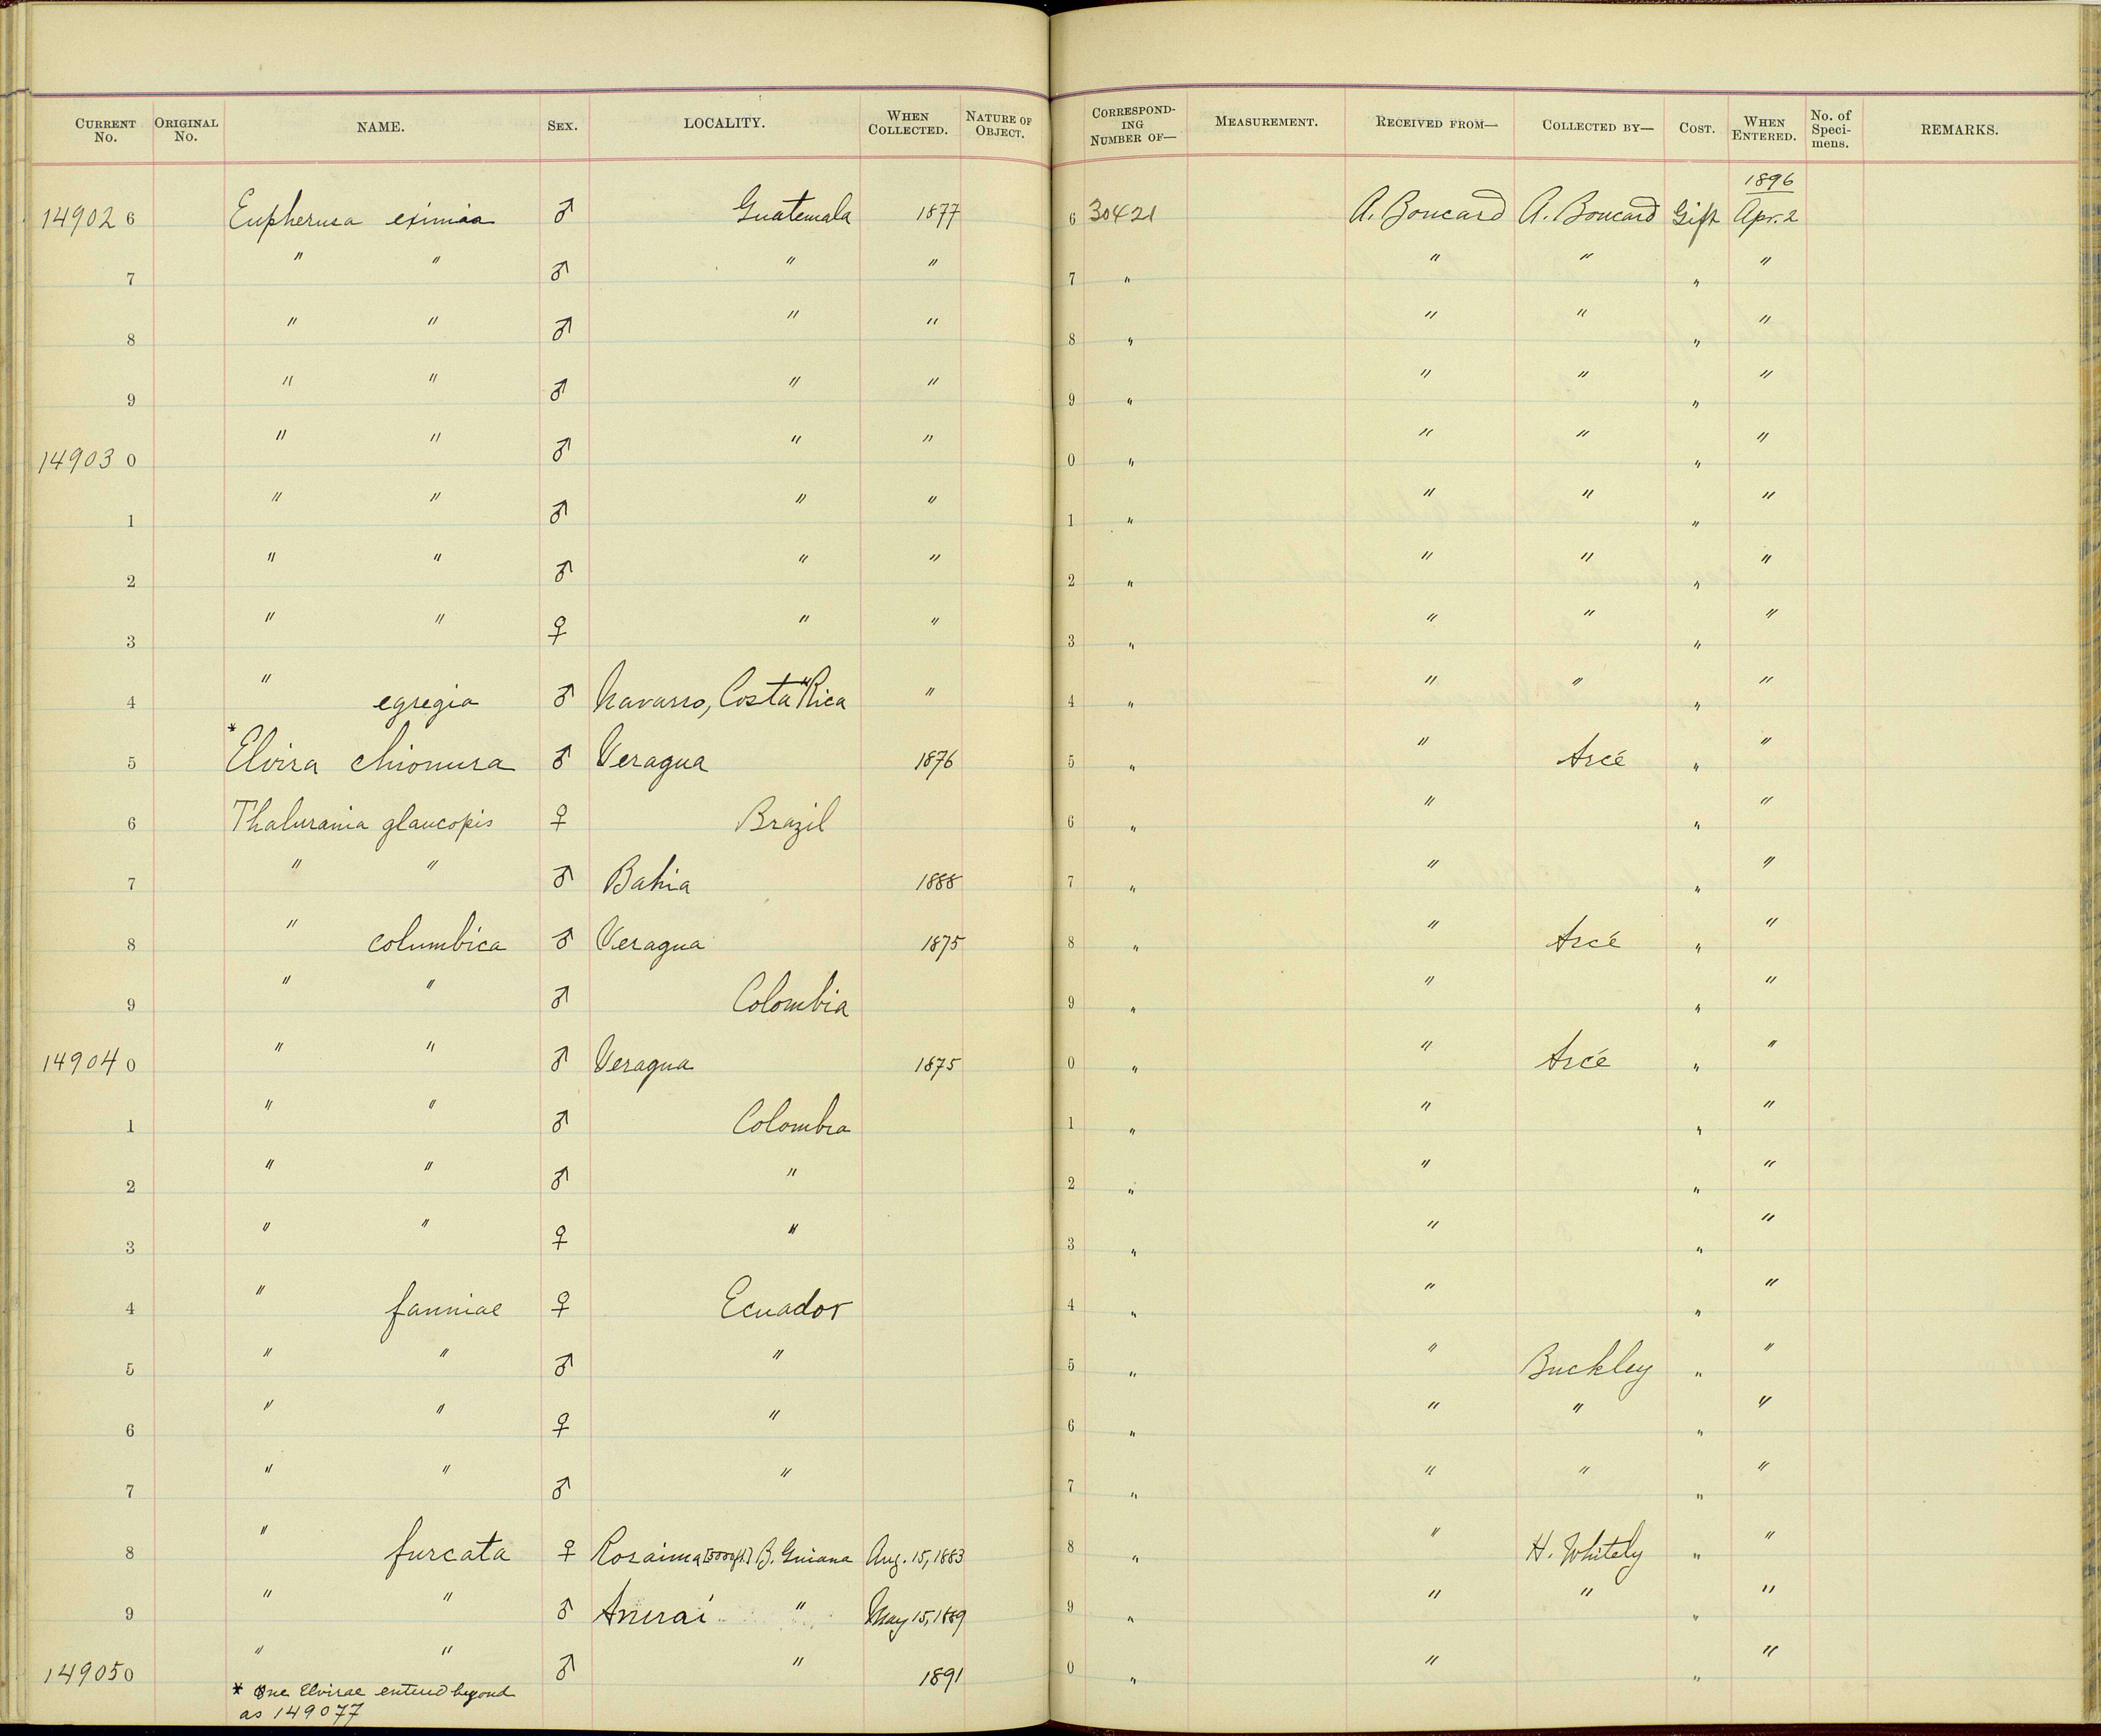 CURRENT No. ORIGINAL No. NAME. SEX. LOCALITY. WHEN COLLECTED. NATURE OF OBJECT. CORRESPONDING NUMBER OF— MEASUREMENT. RECEIVED FROM— COLLECTED BY— COST. WHEN ENTERED. No. of Specimens. REMARKS.
1896
149026 Eupherusa eximia ♂ Guatemala 1877 6 30421 A. Boucard A. Boucard Gift Apr. 2
7 " " ♂ " " 7 " " " " "
8 " " ♂ " " 8 " " " " "
9 " " ♂ " " 9 " " " " "
149030 " " ♂ " " 0 " " " " "
1 " " ♂ " " 1 " " " " "
2 " " ♂ " " 2 " " " " "
3 " " ♀ " " 3 " " " " "
4 " egregia ♂ Navarro, Costa Rica " 4 " " " " "
5 *Elvira chionura ♂ Veragua 1876 5 " " Arcé " "
6 Thalurania glaucopis ♀ Brazil 6 " " " "
7 " " ♂ Bahia 1888 7 " " " "
8 " columbica ♂ Veragua 1875 8 " " Arcé " "
9 " " ♂ Colombia 9 " " " "
149040 " " ♂ Veragua 1875 0 " " Arcé " "
1 " " ♂ Colombia 1 " " " "
2 " " ♂ " 2 " " " "
3 " " ♀ " 3 " " " "
4 " fanniae ♀ Ecuador 4 " " " "
5 " " ♂ " 5 " " Buckley " "
6 " " ♀ " 6 " " " " "
7 " " ♂ " 7 " " " " "
8 " furcata ♀ Roraima [5000 ft.] B. Guiana Aug. 15, 1883 8 " " H. Whitely " "
9 " " ♂ Anurai " May 15, 1889 9 " " " " "
149050 " " ♂ " 1891 0 " " " "
* One Elvirae entered beyond
as 149077